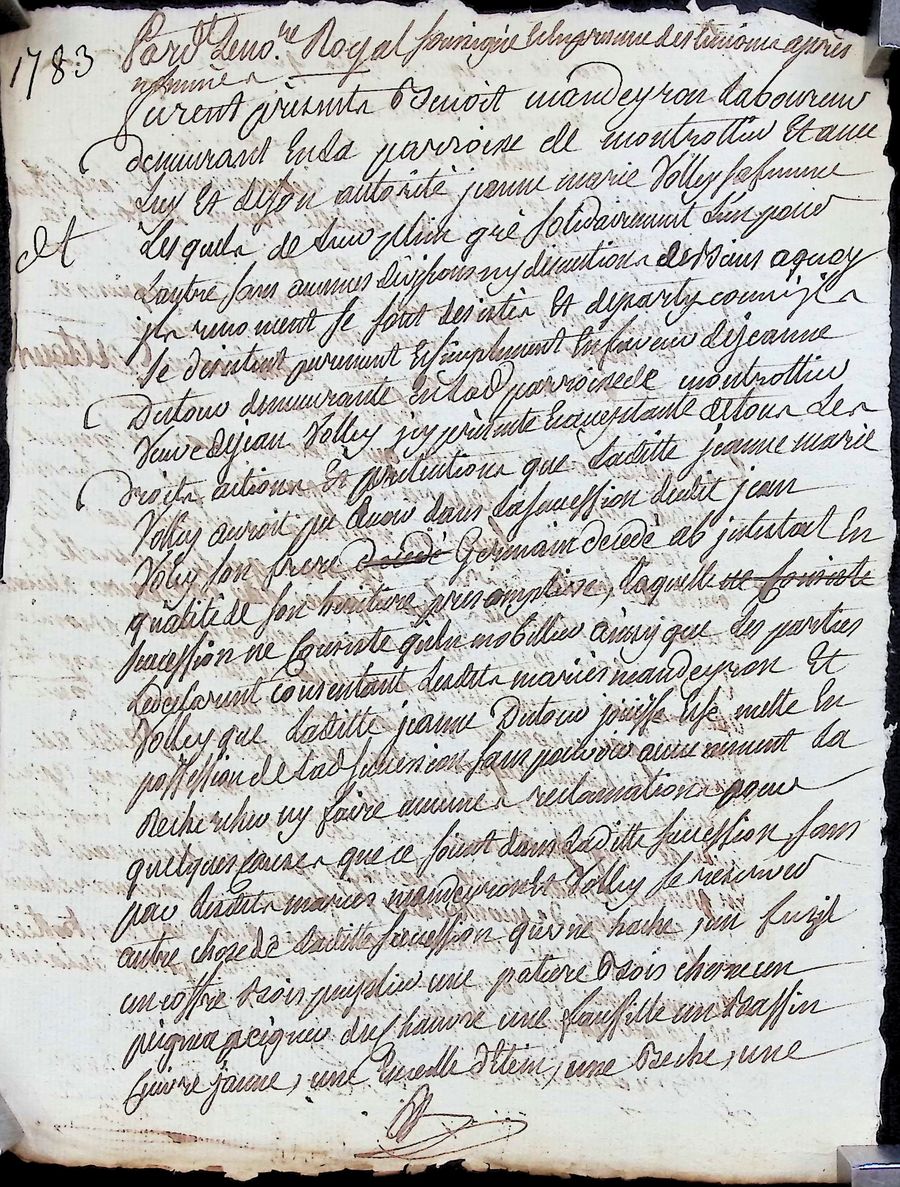 1783
Pard. Le no.re Royal soussigné Et En presence des temoins après
nommés
furent présents Benoit mandeyron Laboureur
demeurant En La parroisse de montrottier Et avec
Luy Et de son autorité jeanne marie Volley sa femme
Lesquels de Leur plein gré solidairement L'un pour
L'autre sans aucunes divisions ny discutions de Biens a quoy
ils renoncent se sont desistés Et departy comm' ils
se desistent purement Et simplement En faveur de jeanne
Dutour demeurante En Lad. parroisse de montrottier
Veuve de jean Volley icy présente Et acceptante de tous Les
Droits actions Et prétentions que Laditte jeanne marie
Volley auroit pu avoir dans La succession dudit jean
Volley son frere decedé Germain decedé ab intestat En
qualité de son héritiere présomptive, Laquelle ne Consiste
succession ne Consiste qu'En mobillier ainsy que Les parties
Le declarent consentant Lesdits mariés mandeyron Et
Volley que Laditte jeanne Dutour jouisse Et se mette En
possession de Lad. succession sans pouvoir aucunement La
Rechercher ny faire aucunes reclamations pour
quelques causes que ce soient dans Laditte succession, sans
par Lesdits mariés mandeyron Et Volley se reserver
autre chose de Laditte succession qu'une hache, un fuzil
un coffre Bois peuplier une patiere Bois chene un
peigne a peigner du chanvre une faussille un Bassin
Cuivre jaune, une Ecuelle d'Etein, une Beche, une